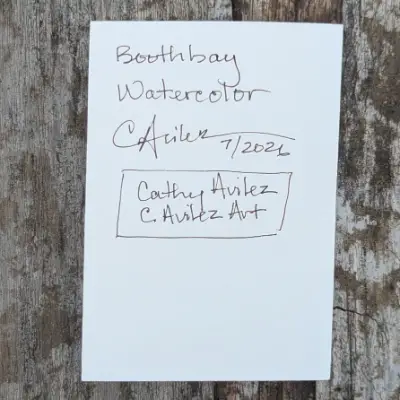 Boothbay
Watercolor
CAvilez 7/2026
Cathy Avilez
C. Avilez Art